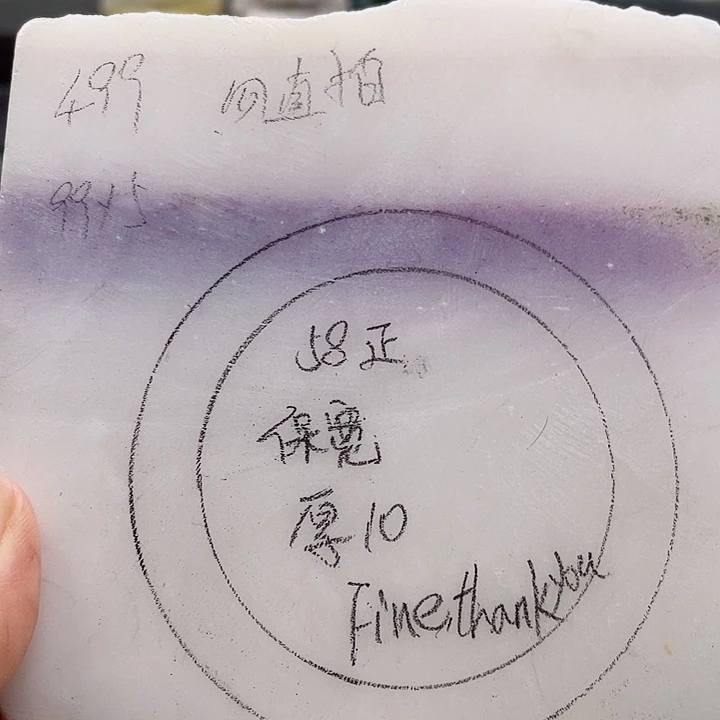 499 回直拍
99x5
58正
保宽
厚10
Fine,thank you